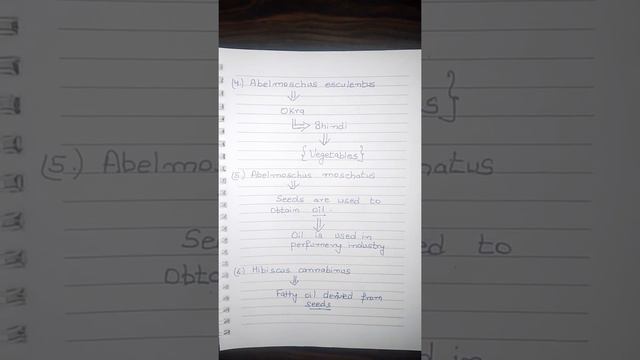 (4.) Abelmoschus esculentus
⇓
OKra
Bhindi
⇓
{Vegetables}
(5.) Abelmoschus moschatus
⇓
Seeds are used to
obtain oil.
⇓
Oil is used in
perfumery industry
(6.) Hibiscus cannabinus
⇓
Fatty oil derived from
seeds